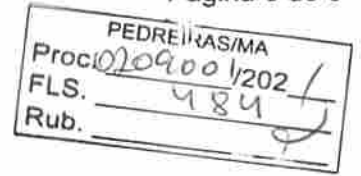 PEDREIRAS/MA
Proc. 0209001/202
FLS. 484
Rub.